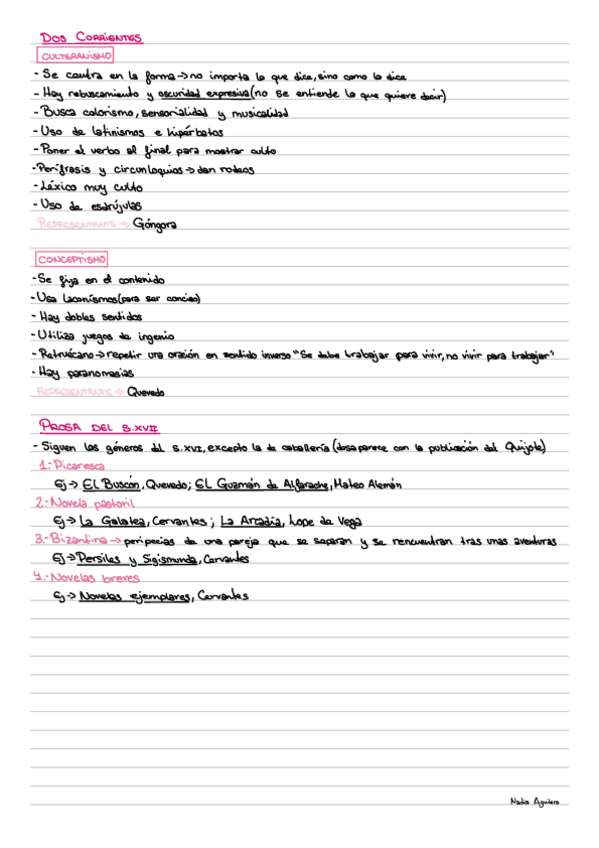 DOS CORRIENTES
CULTERANISMO
- Se centra en la forma → no importa lo que dice, sino como lo dice
- Hay rebuscamiento y oscuridad expresiva (no se entiende lo que quiere decir)
- Busca colorismo, sensorialidad y musicalidad
- Uso de latinismos e hipérbatos
- Poner el verbo al final para mostrar culto
- Perífrasis y circunloquios → dan rodeos
- Léxico muy culto
- Uso de esdrújulas
REPRESENTANTE → Góngora
CONCEPTISMO
- Se fija en el contenido
- Usa laconismos (para ser conciso)
- Hay dobles sentidos
- Utiliza juegos de ingenio
- Retruécano → repetir una oración en sentido inverso "Se debe trabajar para vivir, no vivir para trabajar"
- Hay paronomasias
REPRESENTANTE → Quevedo
PROSA DEL S.XVII
- Siguen los géneros del s.XVI, excepto la de caballería (desaparece con la publicación del Quijote)
1.- Picaresca
Ej → El Buscón, Quevedo; El Guzmán de Alfarache, Mateo Alemán
2.- Novela pastoril
Ej → La Galatea, Cervantes; La Arcadia, Lope de Vega
3.- Bizantina → peripecias de una pareja que se separan y se rencuentran tras unas aventuras
Ej → Persiles y Sigismunda, Cervantes
4.- Novelas breves
Ej → Novelas ejemplares, Cervantes
Nadia Aguilera